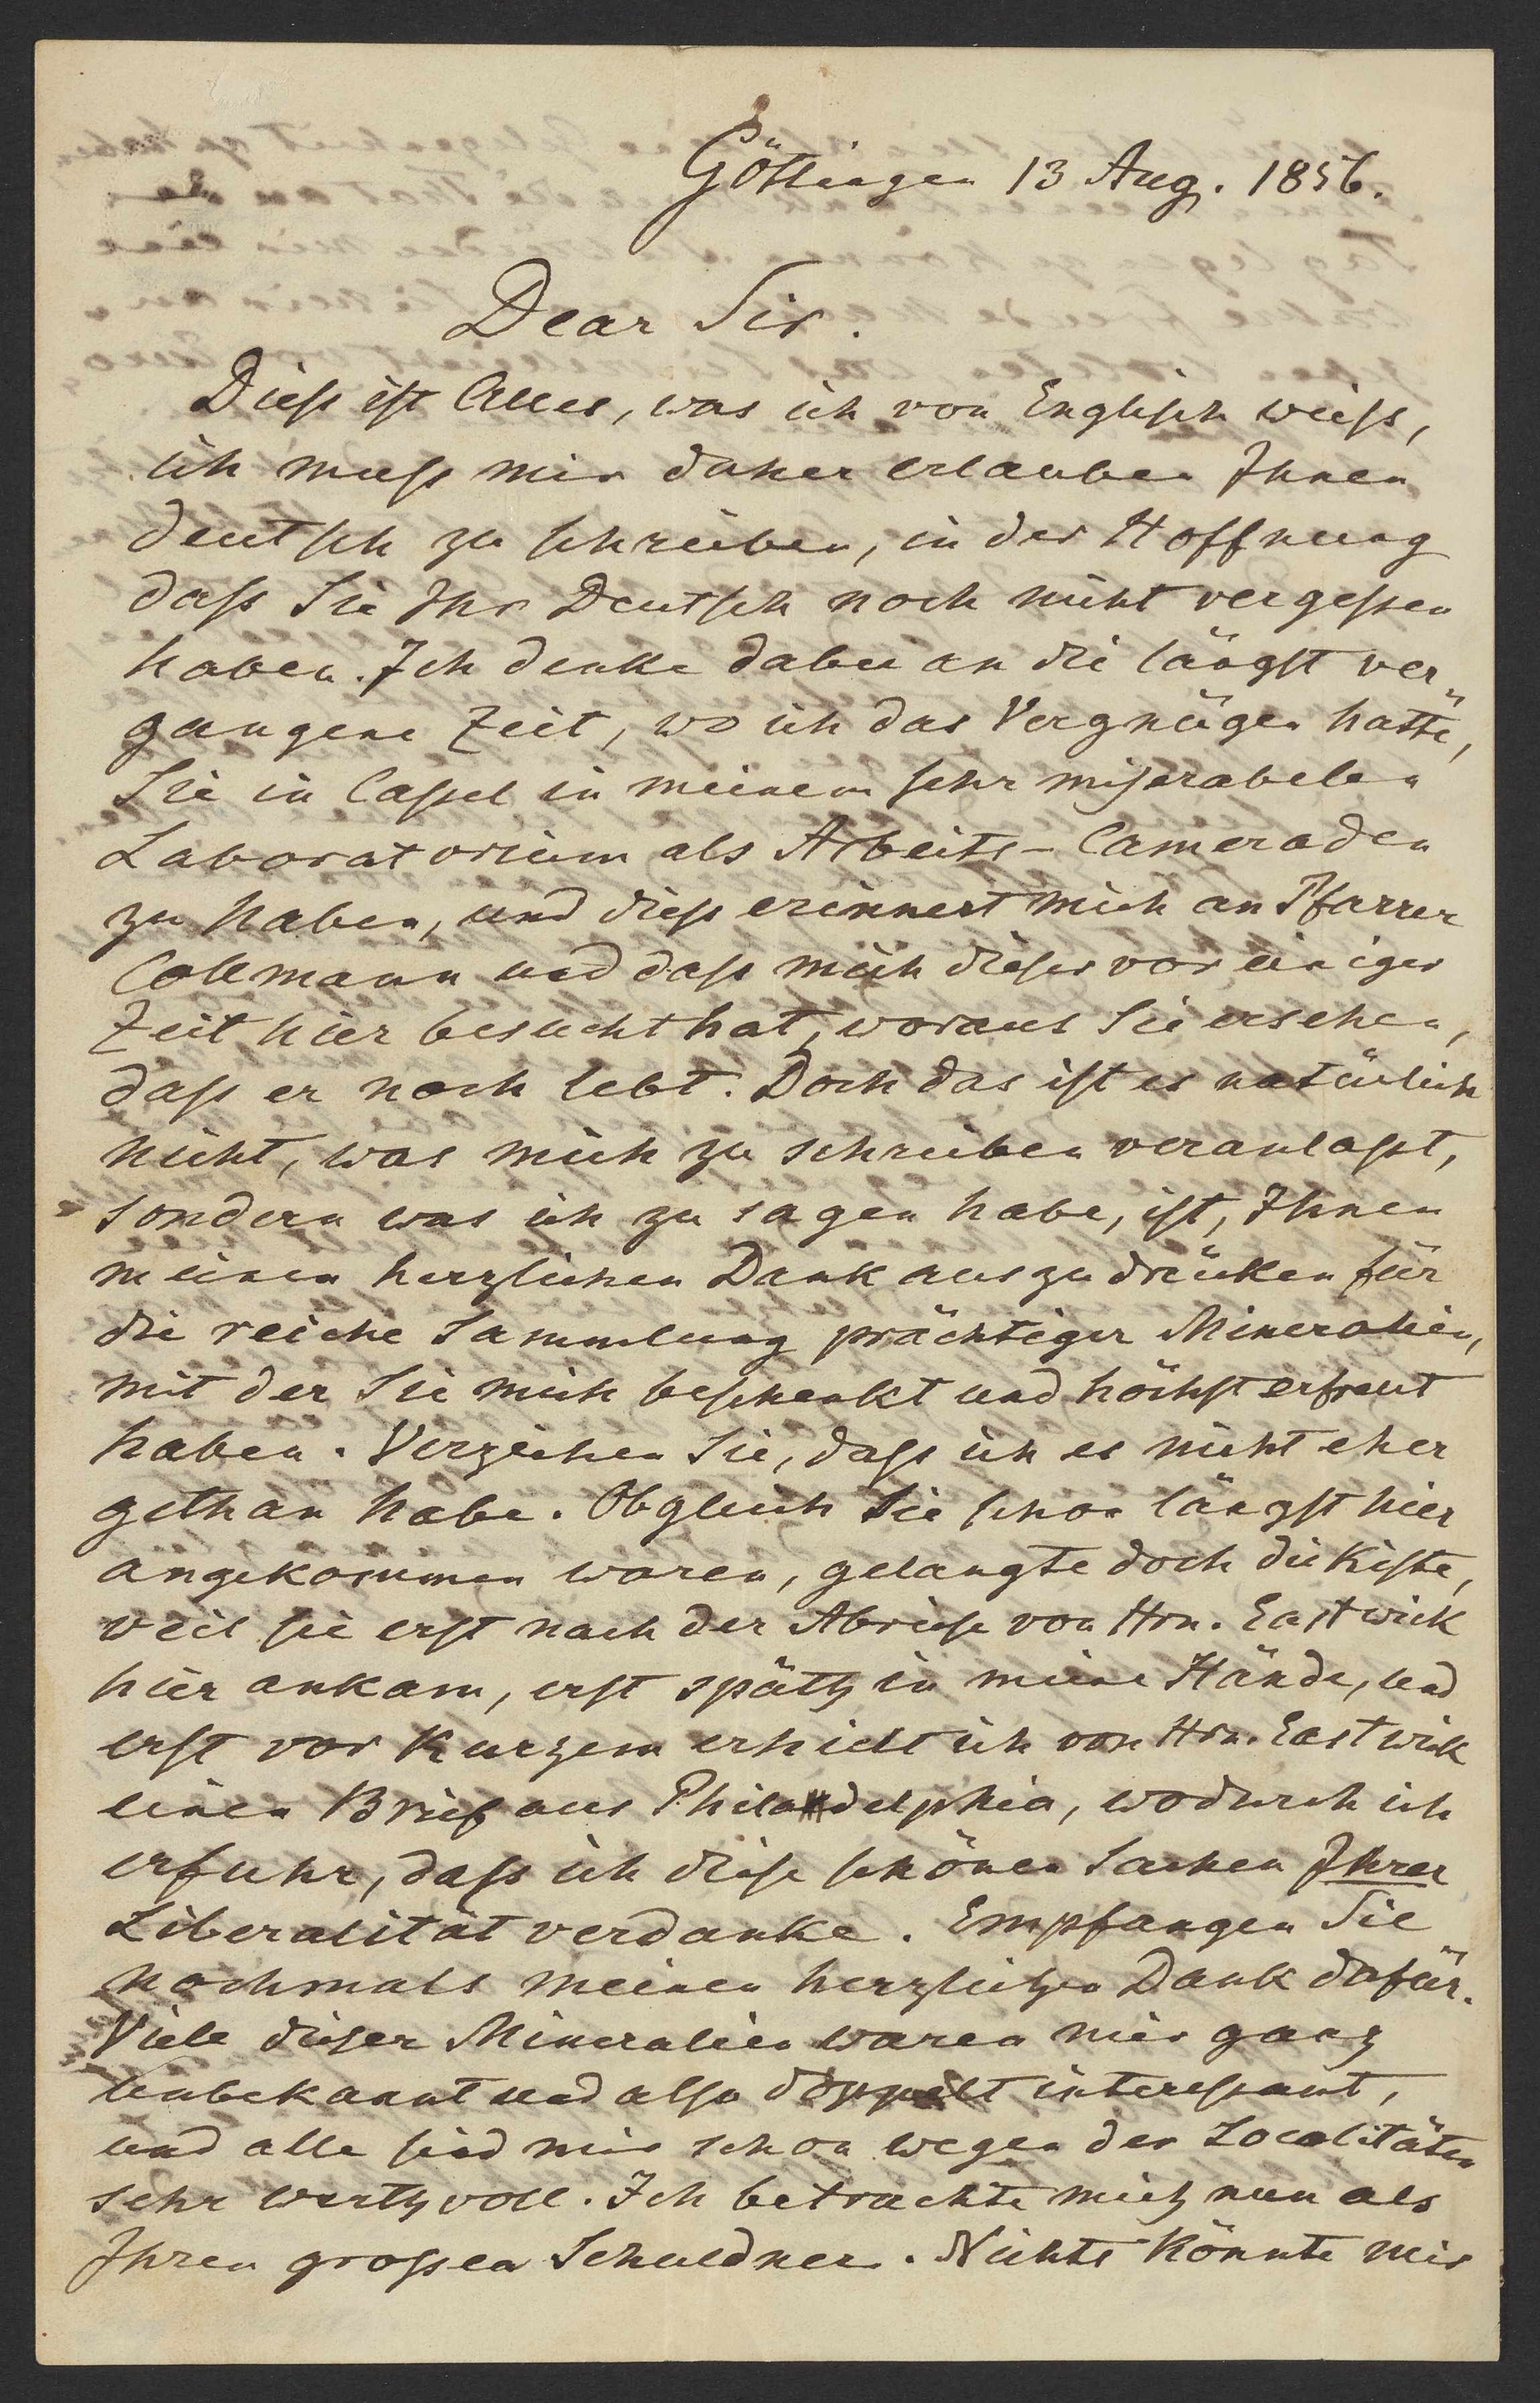 Göttingen 13 Aug. 1856.
Dear Sir.
Diess ist Alles, was ich von Englisch weiss,
ich muss mir daher erlauben Ihnen
deutsch zu schreiben, in der Hoffnung
dass Sie Ihr Deutsch noch nicht vergessen
haben. Ich denke dabei an die längst ver„
gangene Zeit, wo ich das Vergnügen hatte,
Sie in Cassel in meinem sehr miserabelen
Laboratorium als Arbeits-Cameraden
zu haben, und diess erinnert mich an Pfarrer
Collmann und dass mich dieser vor einiger
Zeit hier besucht hat, woraus Sie ersehen,
dass er noch lebt. Doch das ist es natürlich
nicht, was mich zu schreiben veranlasst,
sondern was ich zu sagen habe, ist, Ihnen
meinen herzlichen Dank auszudrücken für
die reiche Sammlung prächtiger Mineralien,
mit der Sie mich beschenkt und höchst erfreut
haben. Verzeihen Sie, dass ich es nicht eher
gethan habe. Obgleich sie schon längst hier
angekommen waren, gelangte doch die Kiste,
weil sie erst nach der Abreise von Hrn. Eastwick
hier ankam, erst spät in meine Hände, und
erst vor Kurzem erhielt ich von Hrn. Eastwick
einen Brief aus Philadelphia, wodurch ich
erfuhr, dass ich diese schönen Sachen Ihrer
Liberalität verdanke. Empfangen Sie
nochmals meinen herzlichen Dank dafür.
Viele dieser Mineralien waren mir ganz
unbekannt und also doppelt interessant,
und alle sind mir schon wegen der Localitäten
sehr werthvoll. Ich betrachte mich nun als
Ihren grossen Schuldner. Nichts könnte mir